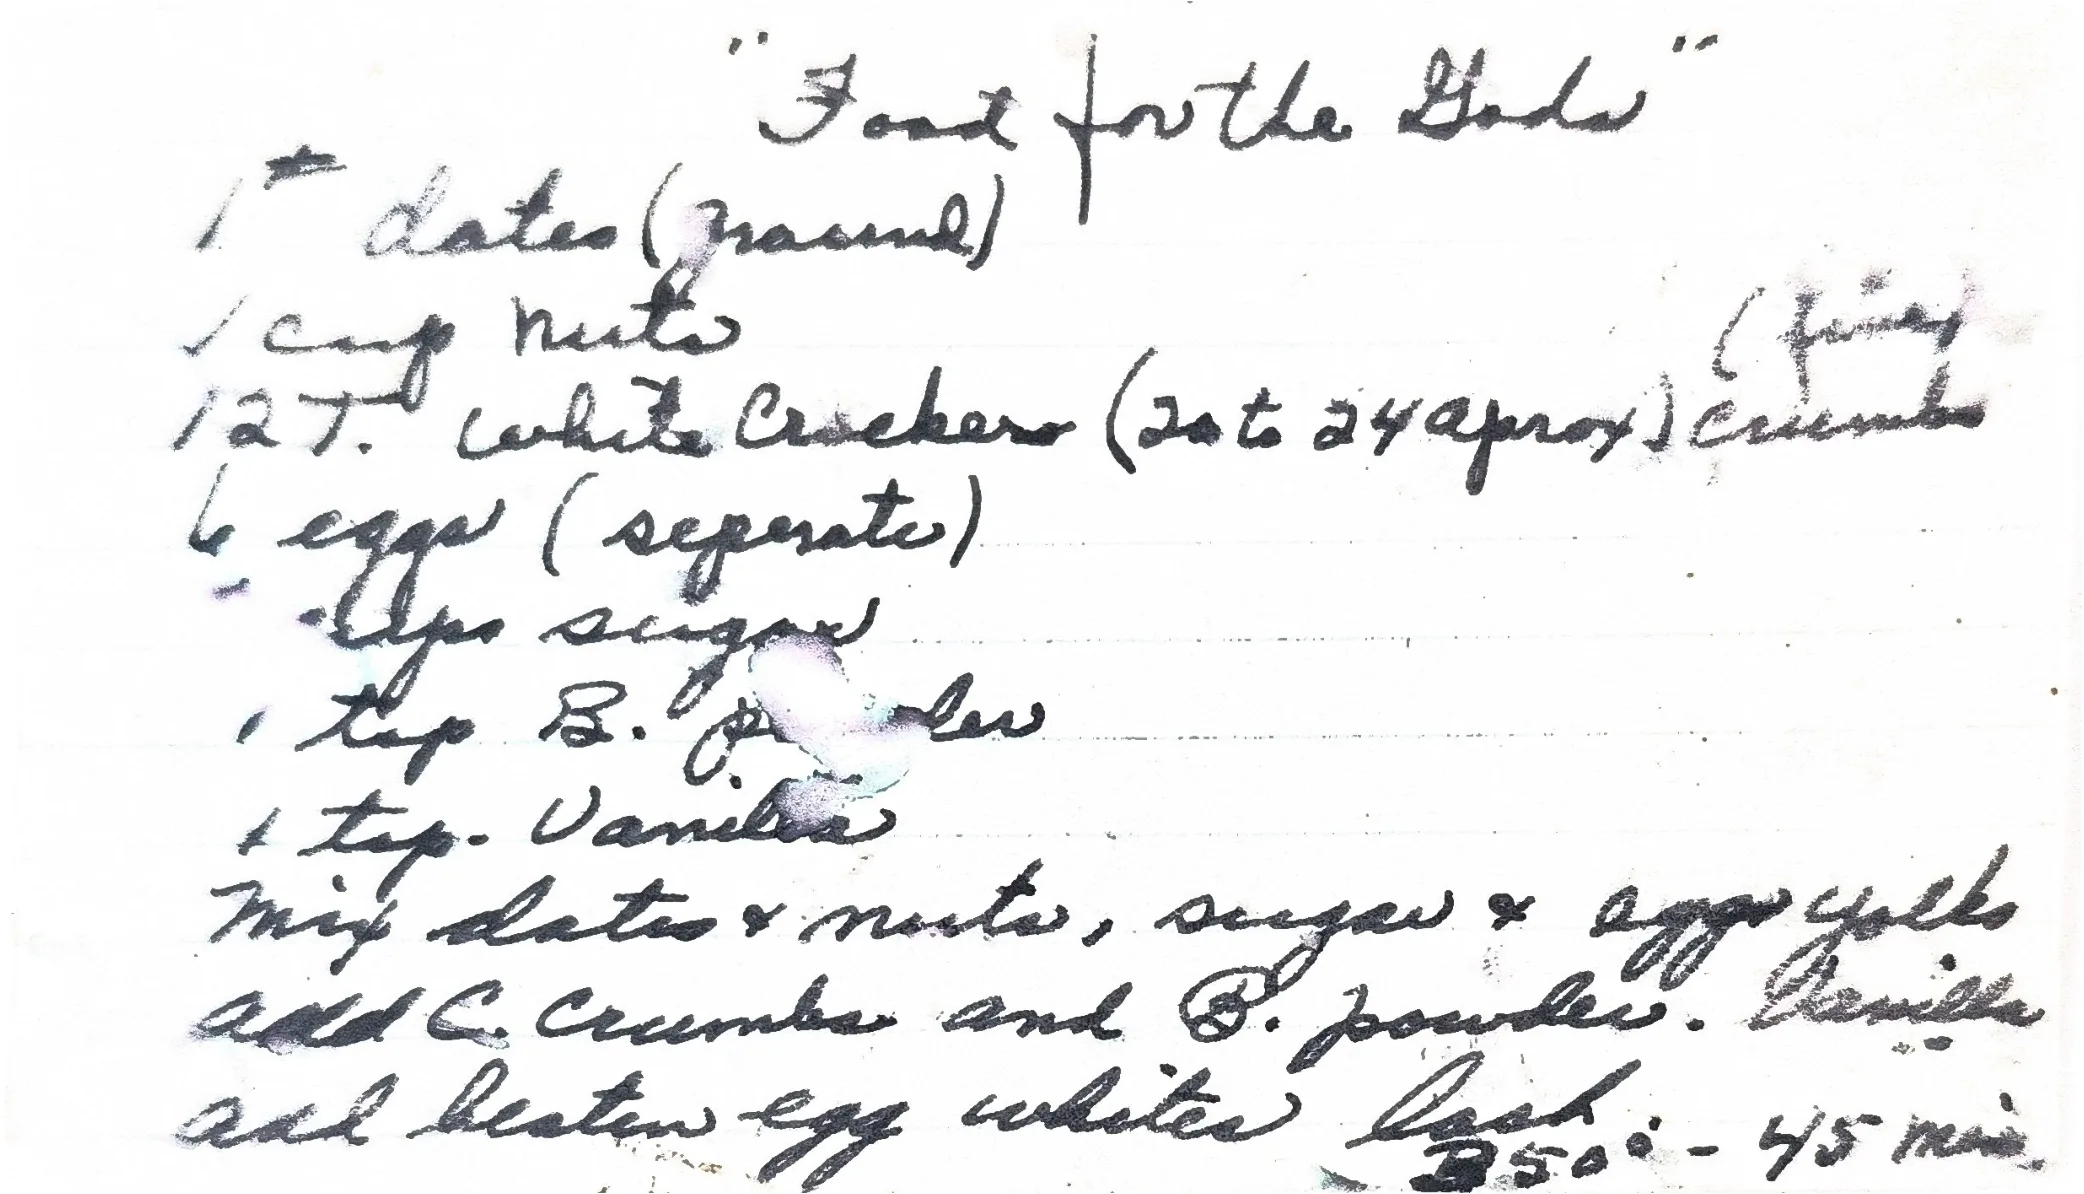 "Food for the Gods"
1# dates (ground)
1 cup nuts
12 T. White Crackers (20 to 24 aprox) (fine) crumbs
6 eggs (seperate)
cups sugar
1 tsp B. powder
1 tsp. Vanilla
Mix dates & nuts, sugar & egg yolks
add C. Crumbs and B. powder. Vanilla
add beaten egg whites last.
350° - 45 min.